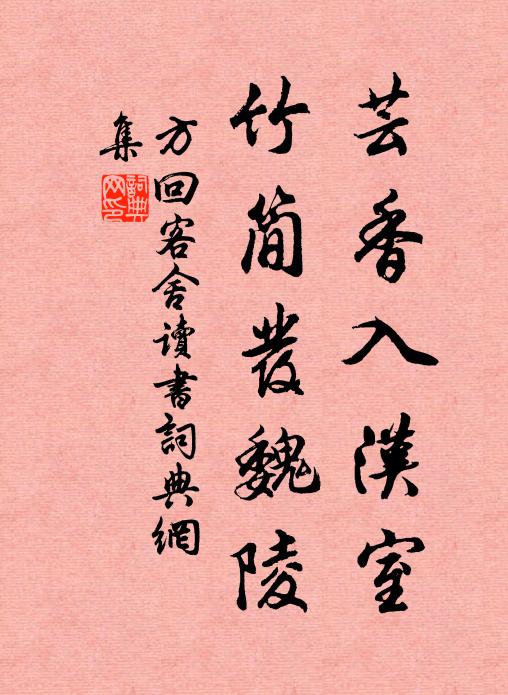 芸香入漢室
竹簡發魏陵
方回客舍讀書詞典網
集
詞典网印